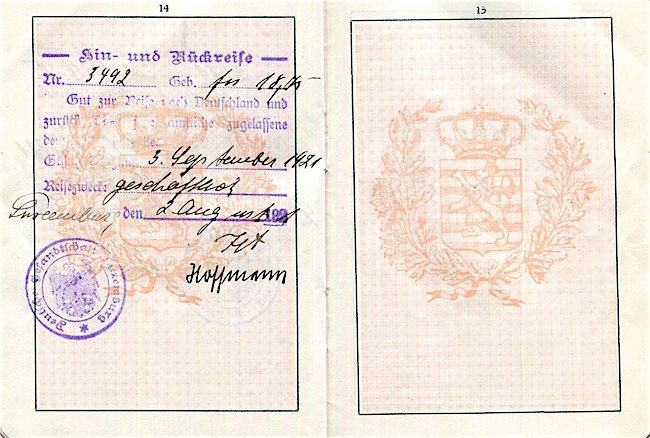 14
Hin- und Rückreise
Nr. 3492 Geb. frs 18,75
Gut zur Reise nach Deutschland und
zurück über jede amtliche zugelassene
3. September 1921
Reisezweck: geschäftlich
Luxemburg, den 2 August 192
Hoffmann
Deutsche Gesandtschaft Luxemburg
15